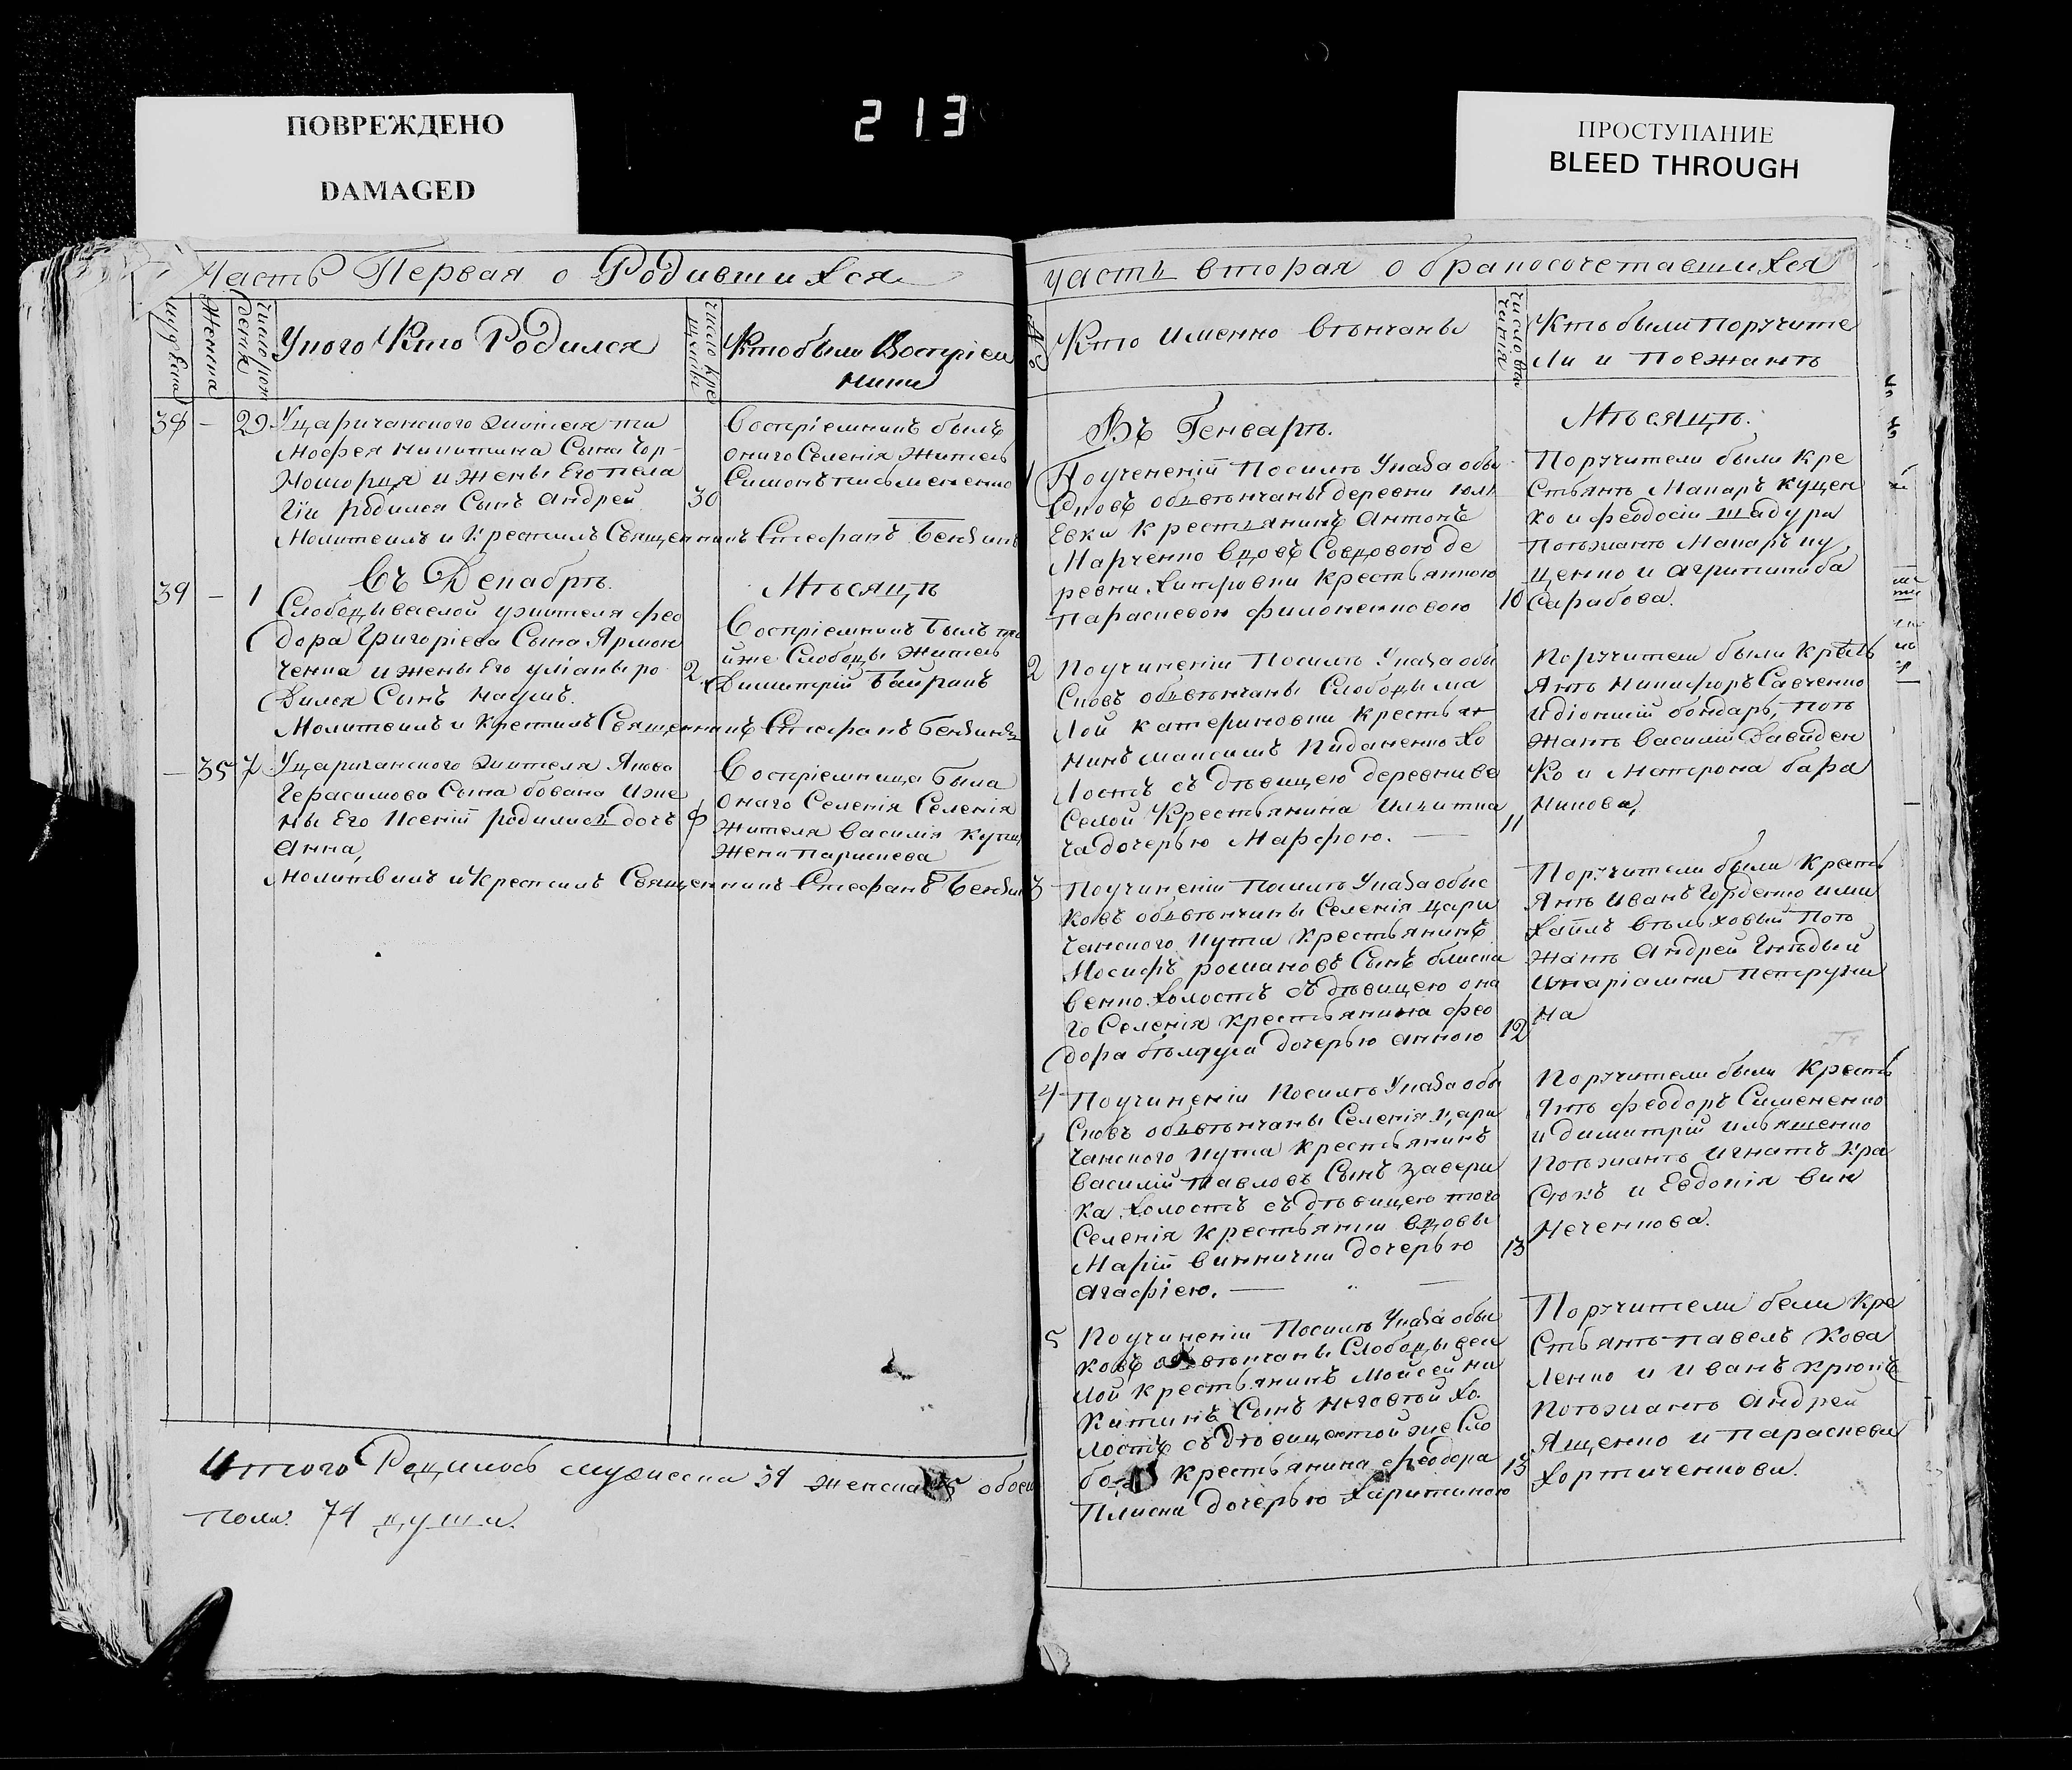 ПОВРЕЖДЕНО
DAMAGED
213
ПРОСТУПАНИЕ
BLEED THROUGH
Часть Первая о Родившихся
мужеска
Женска
число рож
Дения
У кого Кто Родился
число кре
щенія
Кто были Восприем
ники
38 – 29 Царичанского жителя ти
мофея никитина Сына Чор-
номорця и жены Его пела
гіи родился Сынъ Андрей
30
Воспріемникъ былъ
оного Селенія житель
Симонъ писмененко
Молитвилъ и Крестилъ Священникъ Стефанъ
Въ Декабрѣ Мѣсяцѣ
39 – 1 Слободы жителя фео
дора Григоріева Сына Ярмон
ченка и жены Его уліаны ро
дился Сынъ наумъ.
2
Воспріемникъ былъ
же Слободы житель
Димитрій Байракъ
Молитвилъ и Крестилъ Священникъ Стефанъ
– 35 7 Царичанского жителя Якова
Герасимова Сына бована и же
ны Его Ксеніи родилась дочь
Анна,
8
Воспріемница была
оного Селенія Селенія
жителя василія
жена парискева
Молитвилъ и Крестилъ Священникъ Стефанъ
Итого Родилось мужеска 39 женска 35 обоего
пола 74 души.
часть вторая о бракосочетавшихся
№
Кто именно вѣнчаны
Число вѣн
чанія
Кто были поручите
ли и поезжанѣ
Въ Генварѣ. Мѣсяцѣ.
1 По учененіи по силѣ Указа обы
сковъ обвѣнчаны деревни юлі
евки Крестьянинъ Антонъ
Марченко вдовъ Со вдовою де
ревни хитровки крестьянкою
параскевою филоненковою 10
Поручители были Кре
стьянѣ Макаръ куцен
ко и феодосій шадура
поѣзжанѣ Макаръ ку
ценко и агрипина ба
сарабова.
2 По учиненіи по силѣ Указа обы
сковъ обвѣнчаны Слободы ма
лой катериновки крестья
нинъ максимъ Киданенко хо
лостъ съ дѣвицею деревни ве
селой Крестьянина Никити
ча дочерью Марфою. — 11
Поручители были Кресть
янѣ Никифоръ Савченко
и діонисій бондарь, поѣ
жанѣ василій Давиден
ко и Матрона бара
никова,
3 По учиненіи по силѣ Указа обыс
ковъ обвѣнчаны Селенія Цари
чанского Кута Крестьянинъ
Иосифъ романовъ Сынъ близни
ченко холостъ съ дѣвицею она
го Селенія крестьянина фео
дора дочерью анною 12
Поручители были кресть
янѣ иванъ Гордѣенко и ми
хаилъ вѣльховый поѣ
жанѣ андрей Гнѣдый
и маріамна петруши
на
4 По учиненіи По силѣ Указа обы
сковъ обвѣнчаны Селенія Цари
чанского Кута крестьянинъ
василій павловъ Сынъ завери
ка холостъ съ дѣвицею того
Селенія крестьянки вдовы
Маріи виннички дочерью
агафіею. — 13
Поручители были кресть
янѣ феодоръ Симененко
и димитрій ильяшенко
поѣзжанѣ игнатъ Кра
сюкъ и Евдокія вин
неченкова.
5 По учиненіи По силѣ Указа обы
сковъ обвѣнчаны Слободы бѣ
лой крестьянинъ Мойсей ни
китинъ Сынъ хо
лостъ съ дѣвицею той же Сло
боды крестьянина феодора 13
Плиска дочерью харитиною
Поручители бели Кре
стьянѣ павелъ Кова
ленко и Иванъ Крюкъ
поѣзжанѣ андрей
Ященко и параскева
хортиченкова.